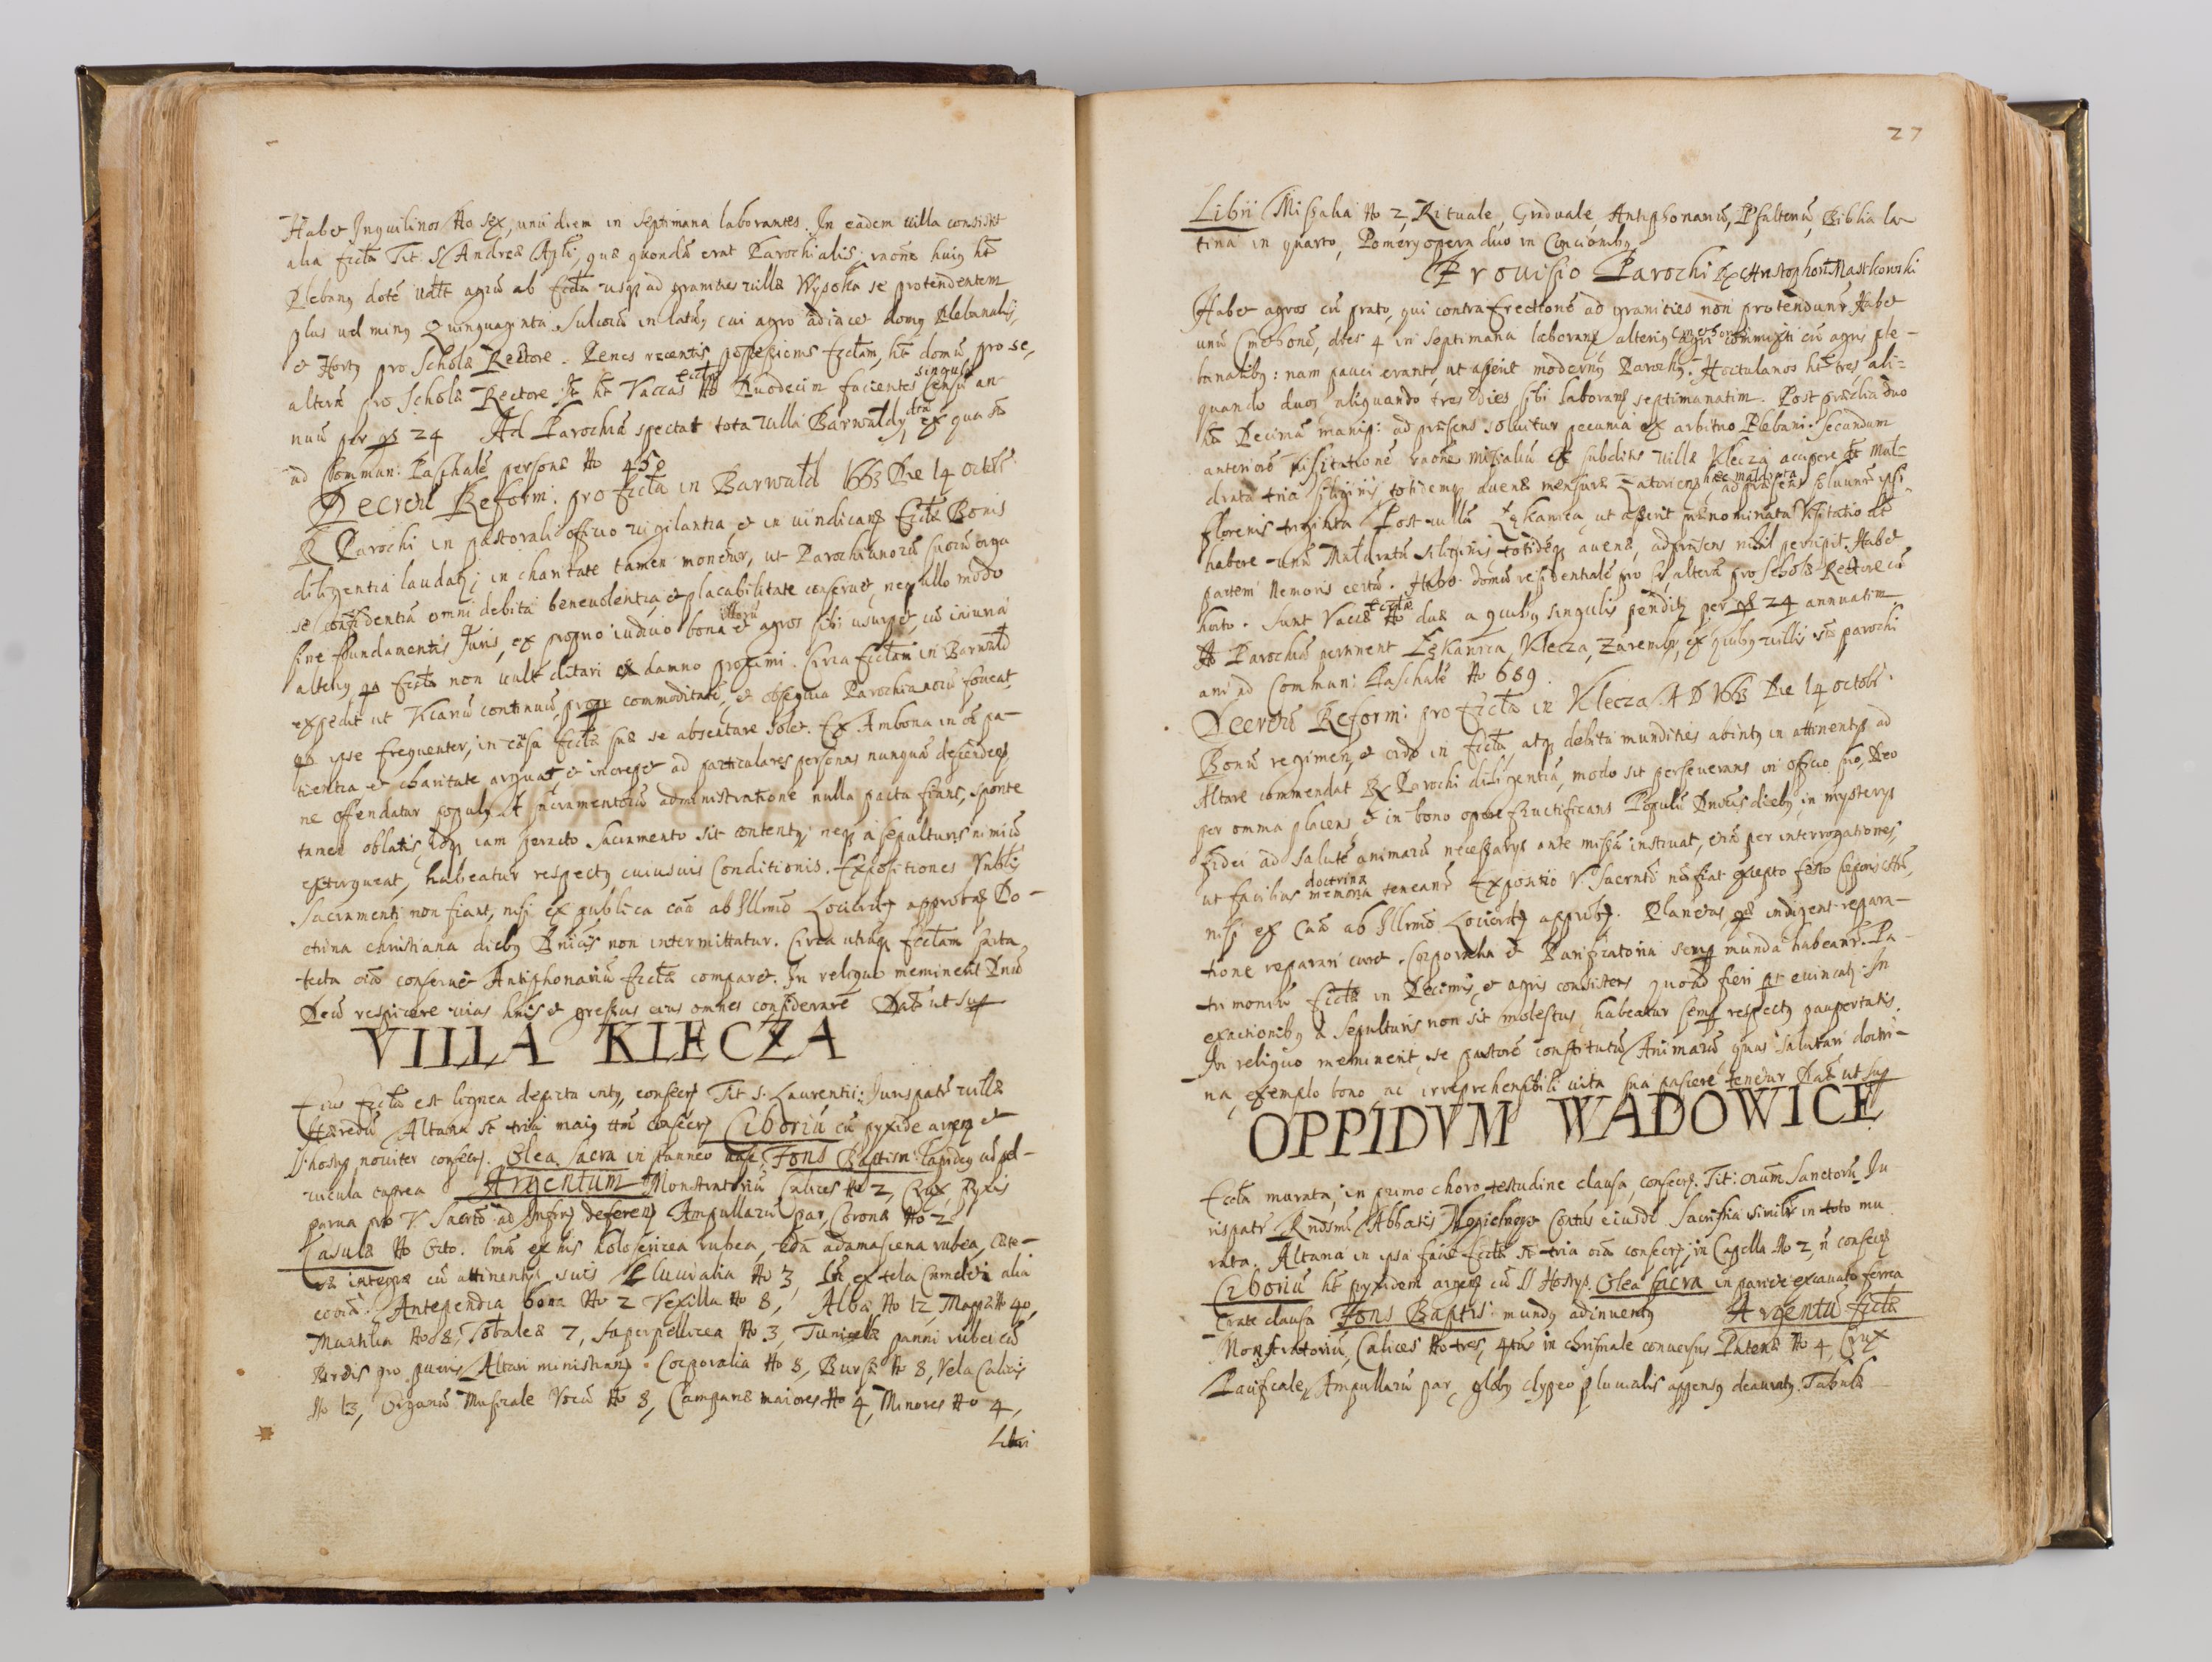 Habet Inquilinos No sex, unū diem in septimana laborantes. In eadem villa consistit
alia Eccła Tit: S. Andreæ Apłi, quæ quondā erat Parochialis, raõne huiꝰ ht
Plebanꝰ dotē agrū ab Eccła usq ad granities villæ Wysoka se protendentem
plus vel minꝰ Quinquaginta Sulcorū in latū, cui agro adiacet domꝰ Plebanalis,
et Hortꝰ pro Scholæ Rectore. Penes recentis Ecclam, ht domū pro se,
alterā pro Scholæ Rectore. Ht Vaccas Ecclæ No Duodecim facientes singulæ censū an-
nuū per gr 24 Ad Parochiā spectat tota villa Barwałdy, ex qua st
ad Commun: Paschalē personæ No 450
Decretū Reform: pro Eccła in Barwałd 1663 Die 14 Octobr.
R Parochi in pastorali officio vigilantia, et in vindicanꝭ Ecclæ Bonis
diligentia laudatꝰ; in charitate tamen monetur, ut Parochianorū suorū erga
se confidentiā omni debita benevolentia, et placabilitate conservet, neq ullo modo
sine fundamentis Juris, ex proprio iudicio bona et agros illorū sibi usurpet, cū iniuria
alteriꝰ, qa Eccła non vult ditari ex damno proximi. Circa Ecclam in Barwałd
expedit ut Vicariū continuū, propr commoditatē, et obsequia Parochianorū foveat,
qa ipse frequenter, in cāsa Ecclæ suæ se absentare solet. Ex Ambona in oī pa-
tientia et charitate arguat et increpet ad particulares personas nunquā descendens,
ne offendatur populꝰ. A Sacramentorū administratione nulla pacta fiant, sponte
tamen oblatis, iam peracto Sacramento sit contentꝰ, neq a sepulturis nimiū
extorqueat, habeatur respectꝰ cuiusvis Conditionis. Expositiones Vnblis
Sacramenti non fiant, nisi ex publica cāa ab Illmō Loci Ordꝰ approbaꝭ. Do-
ctrina christiana diebꝰ Dnicis non intermittatur. Circa utraq Ecclam sarta
tecta oīa conservet Antiphonariū Ecclæ comparet. In reliquo meminerit Dnū
Deū respicere vias hnis et gressus eius omnes considerare Dat ut sup
VILLA KLECZA
Eius Eccła est lignea depicta intꝰ, consecr Tit S. Laurentii: Jurispatr villæ
Hæredū Altaria st tria maiꝰ tm consecr Ciboriū cū pyxide argen et
SS. hostys noviter consecr. Olea Sacra in panneo vase, Fons Baptism: lapideꝰ cū pel-
vicula cuprea Argentum Monstratoriū Calices No 2, Crux, Pyxis
parva pro V. Sacrō ad Infirmꝭ deferenꝭ Ampullarū par, Coronæ No 2
Casulæ No Octo. Una ex his holosericea rubea, 2da adamascena rubea, cæte-
ræ integræ cū attinentys suis Pluvialia No 3, ex tela alia
coriā. Antependia bona No 2 Vexilla No 8, Albæ No 12, Mappæ No 40,
Mantilia No 8, Tobaleæ 7, Superpellicea No 3, Tunicella panni rubei cū
pro pueris Altari ministranꝭ. Corporalia No 8, Bursæ No 8, Vela Calicis
No 13, Organū Musicale Vocū No 8, Campanæ maiores No 4, Minores No 4,
Libri
27
Libri Missalia No 2, Rituale, Graduale, Antiphonariū, Psalteriū, Biblia la-
tina in quarto, Pomery opera duo in Concionibꝰ
Provisio Parochi Rx Christophori Mastkowski
Habet agros cū prato, qui contra Erectionē ad granities non protendunr, Habet
unū Cmethonē, dies 4 in septimana laboranꝭ alteriꝰ Cmethonis agri commixti cū agris ple-
banalibꝰ: nam pauci erant, ut asserit modernꝰ Parochꝰ. Hortulanos ht tres, ali-
quando duos aliquando tres dies sibi laboranꝭ septimanatim. Post prædia duo
ht Decimā manip: ad præsens solvitur pecunia ex arbitrio Plebani. Secundum
anteriorē visitationē raõne missaliū ex subditis villæ Klecza accipere dt Mal-
drata tria siliginis totidemq avenæ mensuræ Zatorienꝭ, hæc maldrata ad præsens solvunr ipsi
florenis triginta Post villā Łękawica, ut asserit prænominata Visitatio dt
habere unū Maldratū siliginis totidēq avenæ, ad præsens nihil percipit. Habet
partem Nemoris certū. Habet domū residentialē pro se, alterā pro Scholæ Rectore cū
horto. Sunt Vaccæ Ecclæ No duæ a quibꝰ singulis pendit per gr 24 annuatim
Ad Parochiā pertinent Łękawica, Klecza, Zaremby, ex quibꝰ villis st parochi
ani ad Commun: Paschalē No 689.
Decretū Reform: pro Eccła in Klecza A D 1663 Die 14 octobr.
Bonū regimen, et ordo in Eccła, atq debita mundities ab intꝰ in attinentys ad
Altare commendat R Parochi diligentiā, modo sit perseverans in officio suo, Deo
per omnia placens et in bono opere fructificans Populū Dnicis diebꝰ, in mysterys
fidei ad salutē animarū necessarys ante missā instruat, etiā per interrogationes,
ut facilius doctrina memoria teneanr Expositio V. Sacrmti nō fiat excepto festo Corporis Chri,
nisi ex Cāa ab Illrmō Loci Ordꝰ approb. Planetas, quæ indigent repara-
tione reparari curet. Corporalia et Purificatoria semp munda habeanr. Pa-
trimoniū Ecclæ in Decimis, et agris consistens quoad fieri pt evincatꝰ. In
exactionibꝰ a sepulturis non sit molestus, habeatur semp respectꝰ paupertatis.
In reliquo meminerit, se pastorē constitutū Animarū, quas salutari doctri-
na, exemplo bono, ac irreprehensibili vita sua pascere tenetur Dat ut sup
OPPIDVM WADOWICE
Eccła murata, in primo choro testudine clausa, consecr. Tit: oīum Sanctorū Ju-
rispatr Rndsmi Abbatis Contꝰ eiusdē Sacristia similr in toto mu-
rata. Altaria in ipsa facie Ecclæ st tria oīa consecr, in Capella No 2, ñ consecr
Ciboriū ht pyxidem argen cū SS Hostys. Olea sacra in pariete excavato ferrea
crate clausa Fons Baptis: mundꝰ adinventꝰ Argentū Ecclæ
Monstratoriū, Calices No tres, 4tus in chrismale conversus Patenæ No 4, Crux
Pacificale, Ampullarū par, globꝰ clypeo pluvialis appensꝰ deauratꝰ. Tabulæ